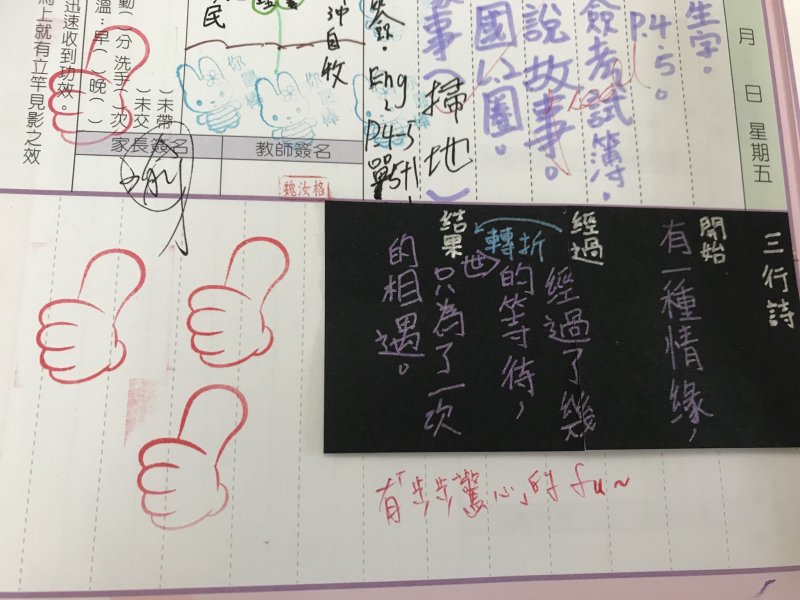 月 日 星期五
生字。
P.4.5。
簽考試簿。
說故事。
國L2圈。
家事(掃地)
簽 Eng
P.4-5
單
冲自牧
民
你最棒
你最棒
教師簽名
魏汝格
家長簽名
)未帶
)未交
動( )分 洗手( )次
溫:早( )晚( )
迅速收到功效。
上就有立竿見影之效
三行詩
開始
有一種情緣,
經過
經過了幾
世的等待,
轉折
結果
只為了一次
的相遇。
有「步步驚心」的fu~